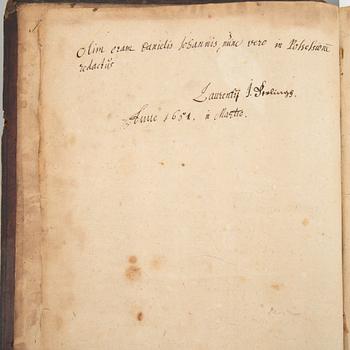 Olim eram Danielis Johannis, nunc vero in Possessionem
redactus
Laurentij J.
Anno 1651. in Martio.